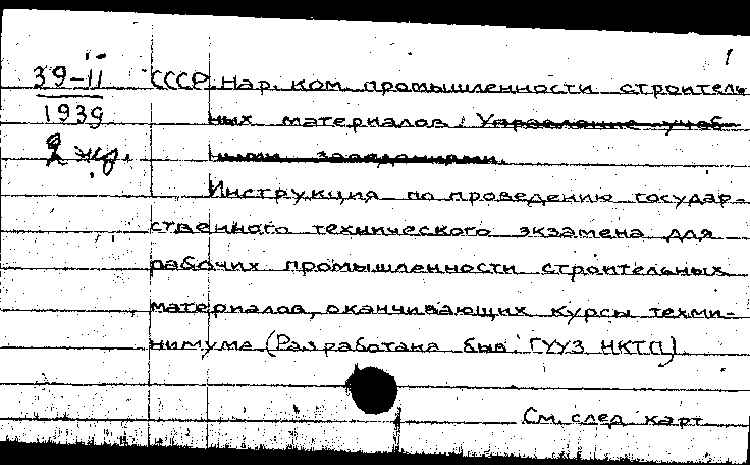 1
39-II СССР. Нар. ком. промышленности строитель
1939 ных материалов. Управление учеб-
2 экз. ными заведениями.
Инструкция по проведению государ-
ственного технического экзамена для
рабочих промышленности строительных
материалов, оканчивающих курсы техми-
нимума (Разработана быв. ГУУЗ НКТП)
См. след. карт.